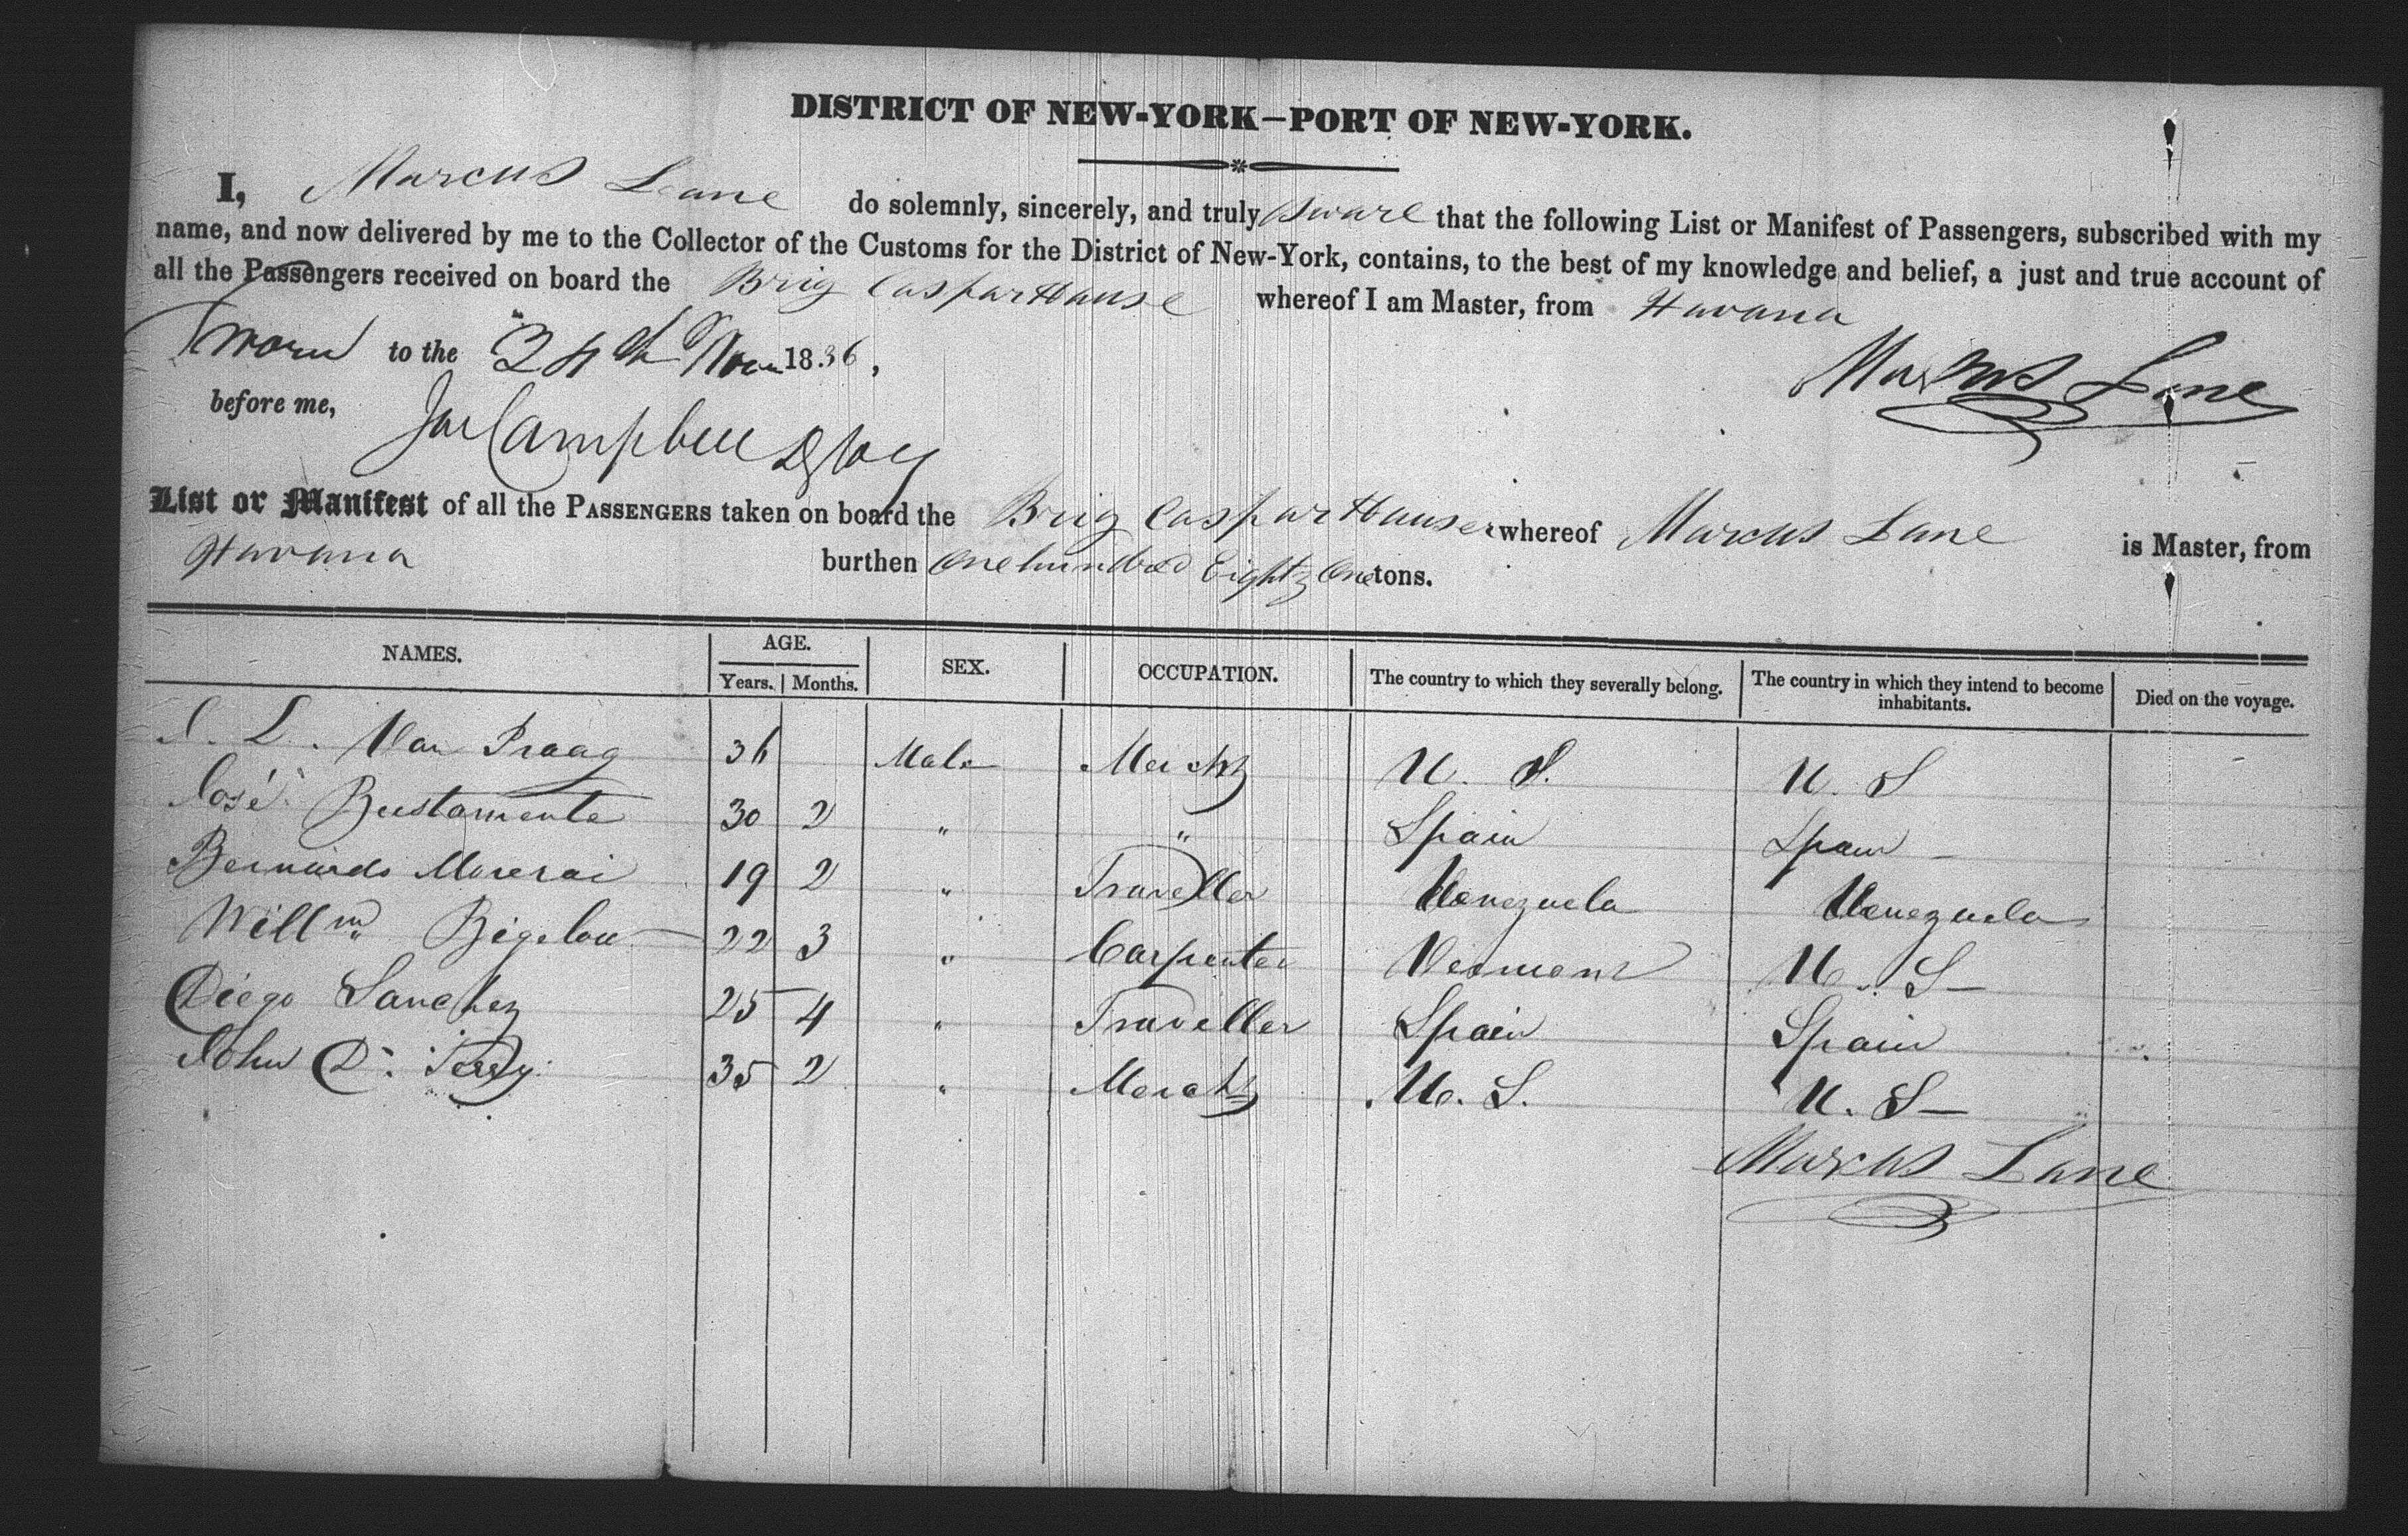 DISTRICT OF NEW-YORK—PORT OF NEW-YORK.
I, Marcus Lane do solemnly, sincerely, and truly sware that the following List or Manifest of Passengers, subscribed with my
name, and now delivered by me to the Collector of the Customs for the District of New-York, contains, to the best of my knowledge and belief, a just and true account of
all the Passengers received on board the Brig Caspar Hause whereof I am Master, from Havana
Sworn to the 24th Nov 1836,
Marcus Lane
before me,
Campbell
List or Manifest of all the PASSENGERS taken on board the Brig Caspar Hauser whereof Marcus Lane is Master, from
Havana burthen One hundred Eighty One tons.
NAMES. AGE. SEX. OCCUPATION. The country to which they severally belong. The country in which they intend to become inhabitants. Died on the voyage.
Years. Months.
L. Van Praag 36 Male Mercht U. S. U. S
José Bustamente 30 2 " " Spain Spain
Bernardo 19 2 " Traveller Venezuela Venezuela
Willm Bigelow 22 3 " Carpenter Vermont U. S
Diego Sanchez 25 4 " Traveller Spain Spain
John D. 35 2 " Mercht U. S. U. S
Marcus Lane